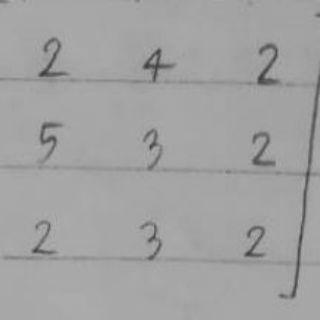 2 4 2
5 3 2
2 3 2 ]